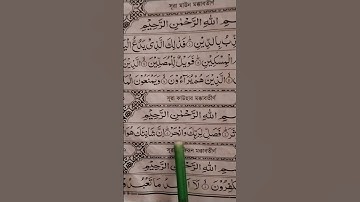 সূরা মাউন মক্কাবতীর্ণ
بِسْمِ اللّٰهِ الرَّحْمٰنِ الرَّحِيْمِ
بُ بِالدِّيْنِ فَذٰلِكَ الَّذِيْ يَدُعُّ الْيَ
الْمِسْكِيْنِ فَوَيْلٌ لِّلْمُصَلِّيْنَ الَّذِيْنَ
الَّذِيْنَ هُمْ يُرَآءُوْنَ وَيَمْنَعُوْنَ الْمَا
সূরা কাউছার মক্কাবতীর্ণ
بِسْمِ اللّٰهِ الرَّحْمٰنِ الرَّحِيْمِ
ثَرَ فَصَلِّ لِرَبِّكَ وَانْحَرْ اِنَّ شَانِئَكَ هُوَ
সূরা মক্কাবতীর্ণ
بِسْمِ اللّٰهِ الرَّحْمٰنِ الرَّحِيْمِ
الْكٰفِرُوْنَ لَا اَعْبُدُ مَا تَعْبُدُوْ